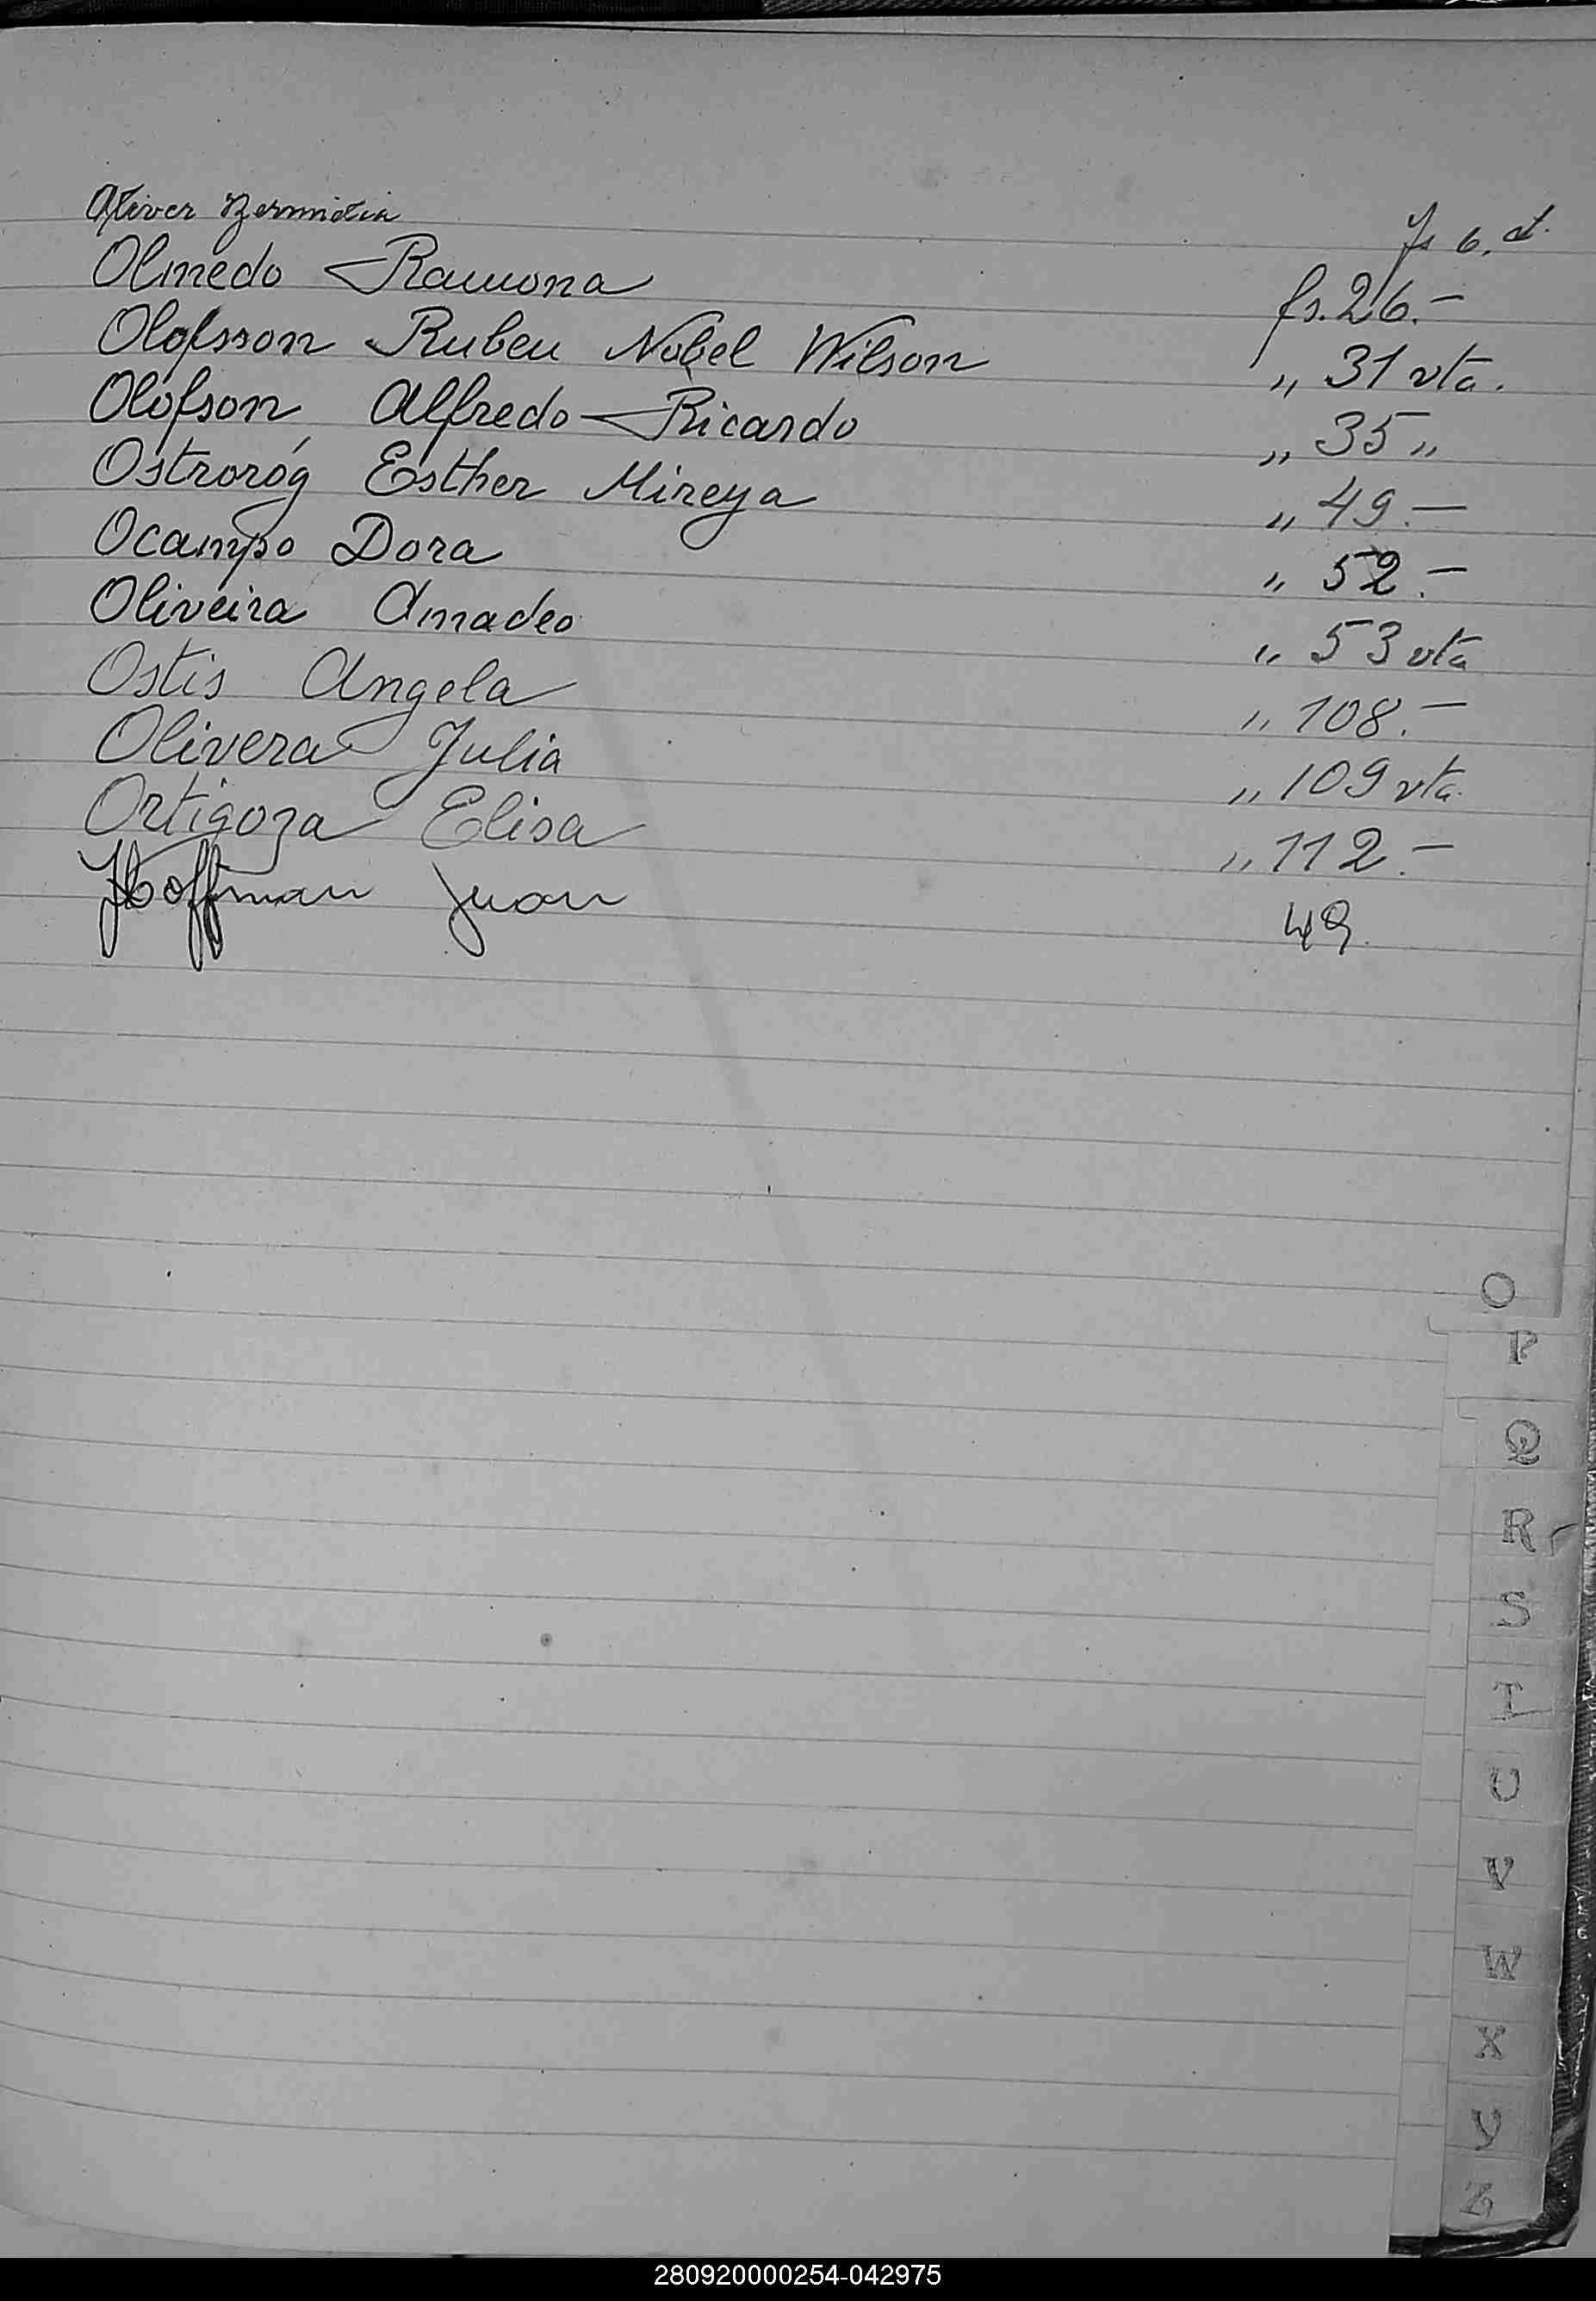 Oliver
fs 6.
Olmedo Ramona fs. 26.—
Olofsson Ruben Nobel Wilson „ 31 vta.
Olofson Alfredo Ricardo „ 35 „
Ostroróg Esther Mireya „ 49.—
Ocampo Dora „ 52.—
Oliveira Amadeo „ 53 vta
Ostis Angela „ 108.—
Olivera Julia „ 109 vta.
Ortigoza Elisa „ 112.—
Hoffman Juan 49.
O
P
Q
R
S
T
U
V
W
X
Y
Z
280920000254-042975